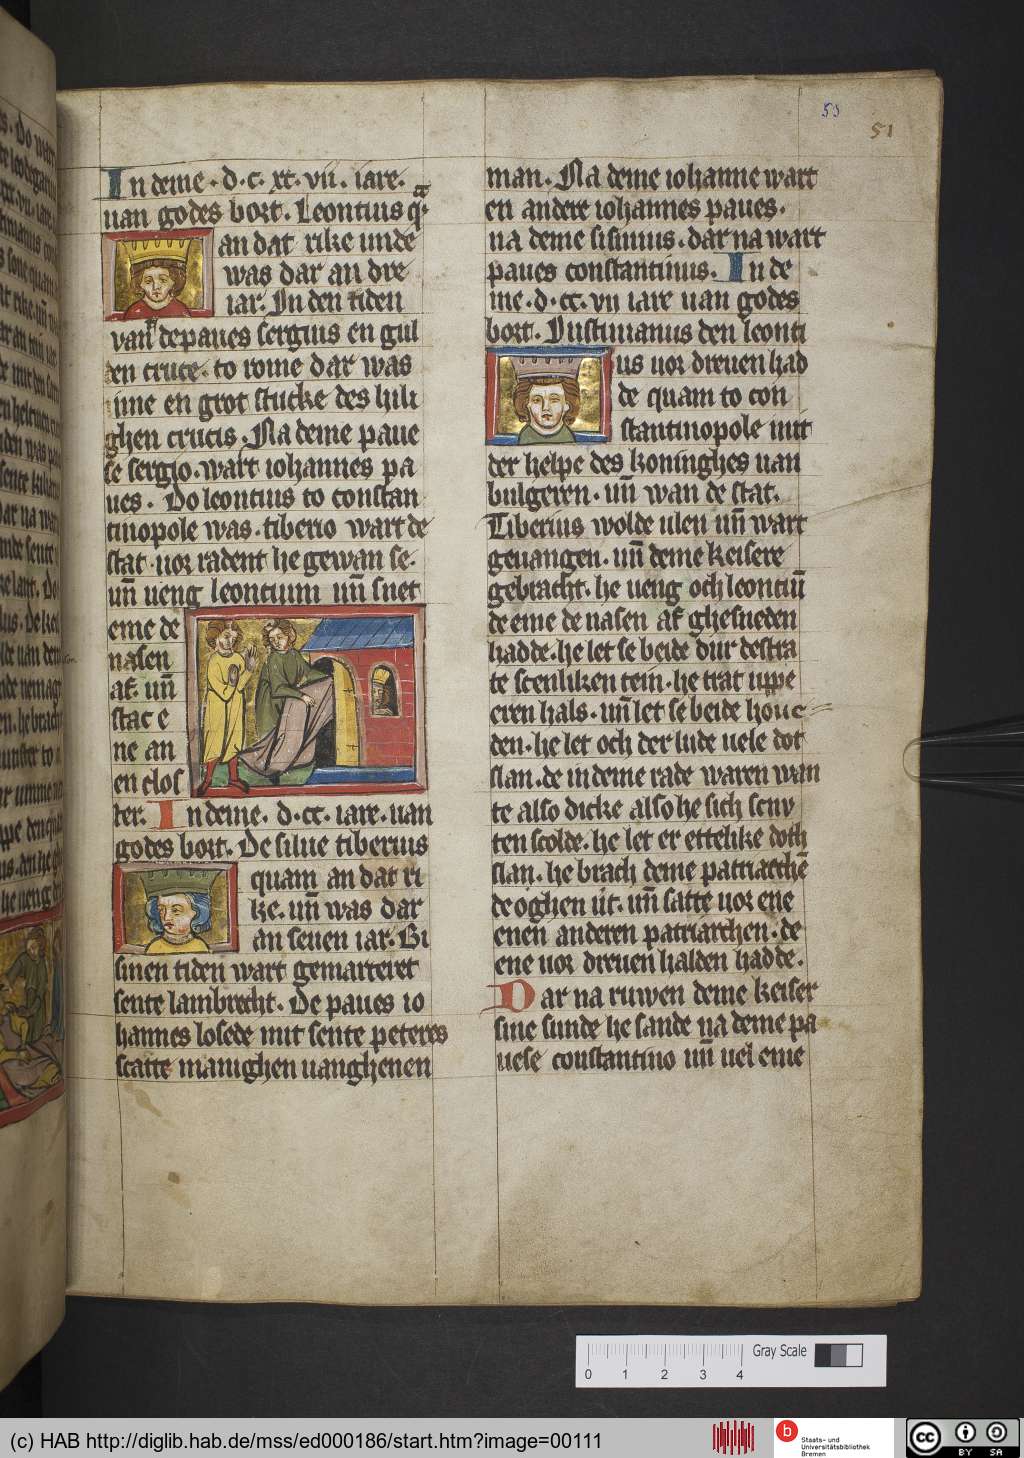 55
51
In deme · d · c · xc · vii · iare ·
uan godes bort · Leontius qͣ
an dat rike unde
was dar an dre
iar · In den tiden
van depaues sergius en gul
den cruce · to rome dar was
inne en grot stucke des hili
ghen crucis · Na deme paue
se sergio · wart iohannes pa
ues · Do leontius to constan
tinopole was · tiberio wart de
stat · uor radent he gewan se ·
uñ ueng leontium uñ snet
eme de
nasen
af · uñ
stac e
ne an
en clos
ter · In deme · d · cc · iare · uan
godes bort · De silue tiberius
quam an dat ri
ke · uñ was dar
an seuen iar · Bi
sinen tiden wart gemarteret
sente lambrecht · De paues io
hannes losede mit sente peteres
scatte manighen uanghenen
man · Na deme iohanne wart
en andere iohannes paues ·
na deme sisinnius · dar na wart
paues constantinus · In de
me · d · cc · vii iare uan godes
bort · Iustinianus den leonti
us uor dreuen had
de quam to con
stantinopole mit
der helpe des koninghes uan
bulgeren · uñ wan de stat ·
Tiberius wolde ulen uñ wart
geuangen · uñ deme keisere
gebracht · he ueng och leontiū
de eme de nasen af ghesneden
hadde · he let se beide dur de stra
te scenliken tein · he trat uppe
eren hals · uñ let se beide houe
den · he let och der lude uele dot
slan · de in deme rade waren wan
te also dicke also he sich snu
ten scolde · he let er ettelike doth
slan · he brach deme patriarchē
de oghen ut · uñ satte uor ene
enen anderen patriarchen · de
ene uor dreuen halden hadde ·
Dar na ruwen deme keiser
sine sunde he sande na deme pa
uese constantino uñ uel eme
0 1 2 3 4
Gray Scale
(c) HAB http://diglib.hab.de/mss/ed000186/start.htm?image=00111
b
Staats- und
Universitätsbibliothek
Bremen
cc
BY SA